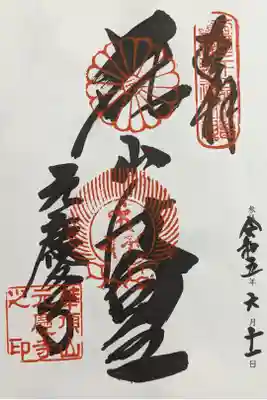 奉拝
令和五年六月十一日
花山法皇
元慶寺
華頂山
元慶寺
之印